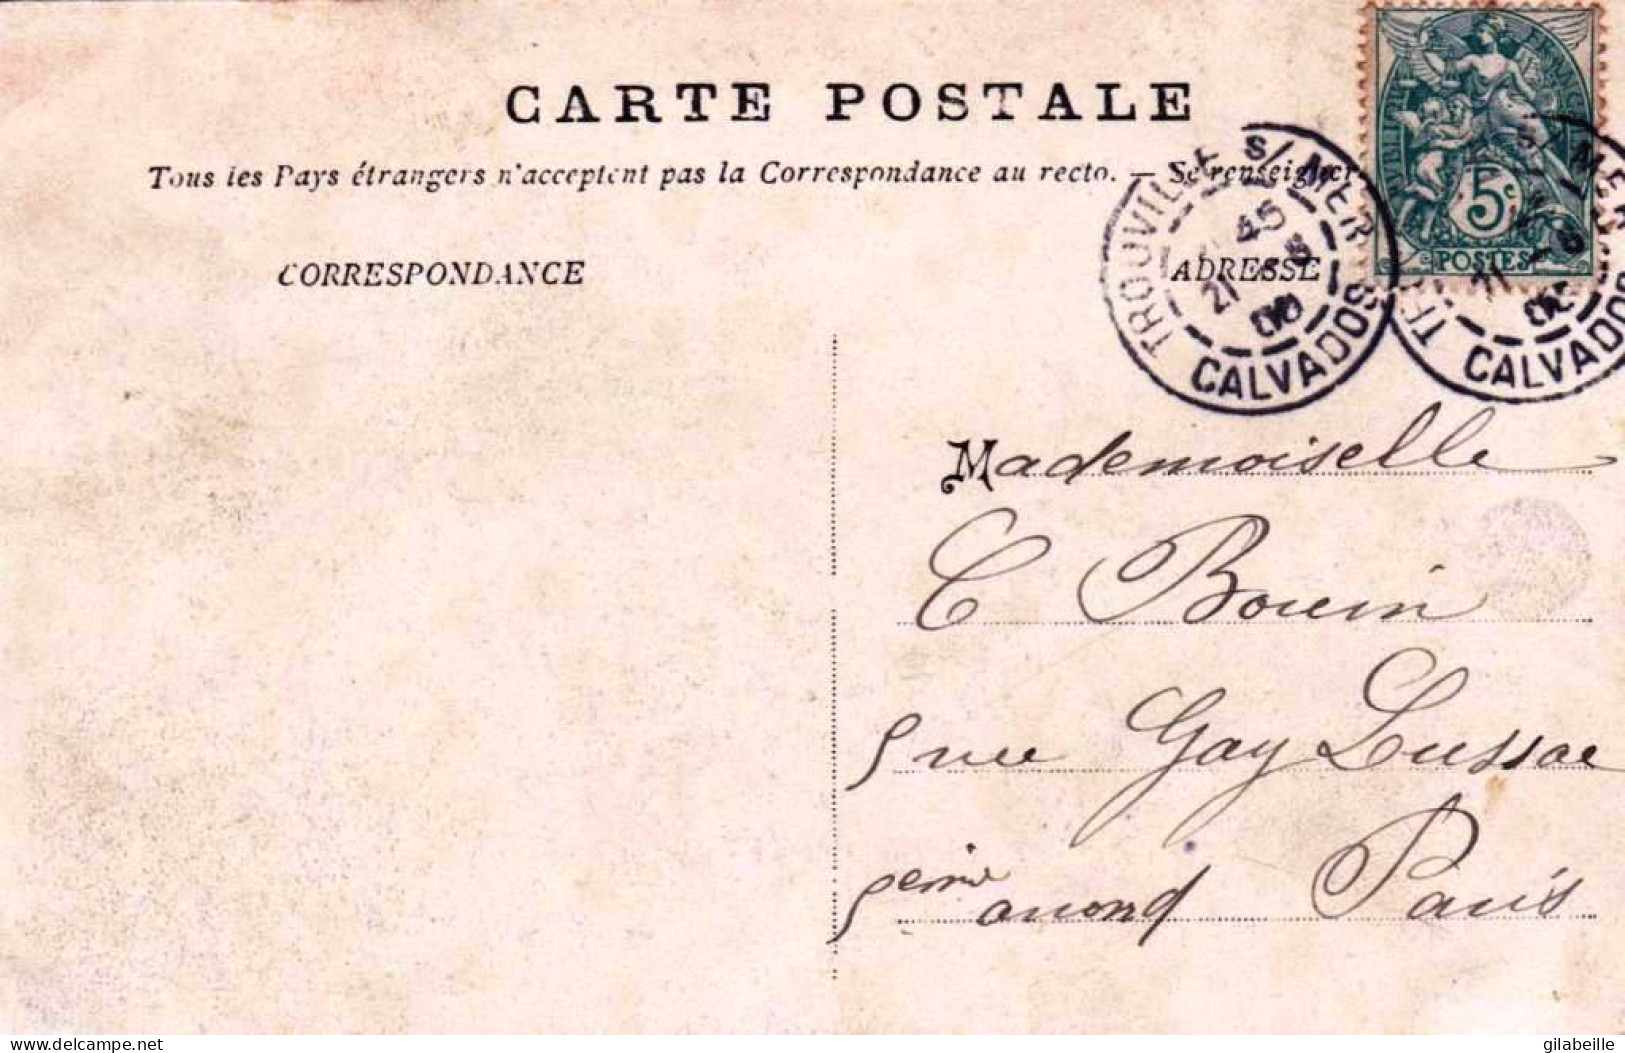 CARTE POSTALE
Tous les Pays étrangers n'acceptent pas la Correspondance au recto. — Se renseigner
TROUVILLE S/ MER
45
21 8
06
CALVADOS
RÉPUBLIQUE FRANÇAISE
5c
POSTES
S/ MER
21 8
CALVADOS
CORRESPONDANCE
ADRESSE
Mademoiselle
C Bouin
5 rue Gay Lussac
5eme arrond Paris
delcampe.net
gilabeille